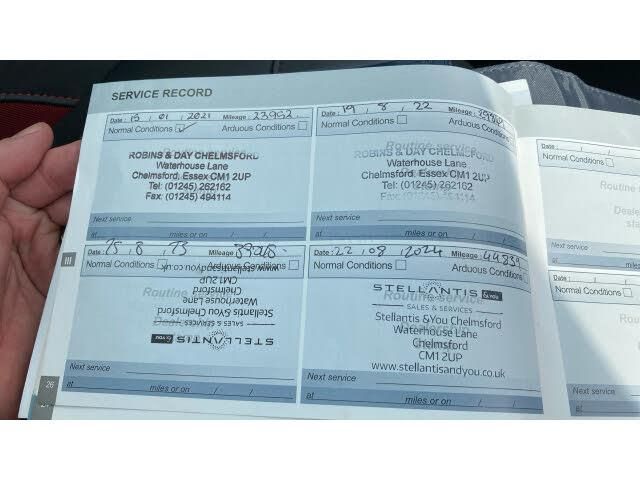 SERVICE RECORD
Date: 15 / 01 / 2021 Mileage: 23952
Normal Conditions Arduous Conditions
Routine service
ROBINS & DAY CHELMSFORD
Waterhouse Lane
Chelmsford, Essex CM1 2UP
Tel: (01245) 262162
Fax: (01245) 494114
Next service
at miles or on / /
Date: 19 / 8 / 22 Mileage:
Normal Conditions Arduous Conditions
Routine service
ROBINS & DAY CHELMSFORD
Waterhouse Lane
Chelmsford, Essex CM1 2UP
Tel: (01245) 262162
Fax: (01245) 494114
Next service
at miles or on / /
Date: Mileage:
Normal Conditions Arduous Conditions
www.stellantisandyou.co.uk
CM1 2UP
Chelmsford
Routine service
Waterhouse Lane
Stellantis &You Chelmsford
SALES & SERVICES
STELLANTIS &YOU
Next service
at miles or on / /
Date: 22 / 08 / 2024 Mileage: 44839
Normal Conditions Arduous Conditions
STELLANTIS &YOU
Routine service
SALES & SERVICES
Stellantis &You Chelmsford
Waterhouse Lane
Chelmsford
CM1 2UP
www.stellantisandyou.co.uk
Next service
at miles or on / /
III
26
Date: / /
Normal Conditions
Routine
Next service
at
Date: / /
Normal Conditions
Next service
at